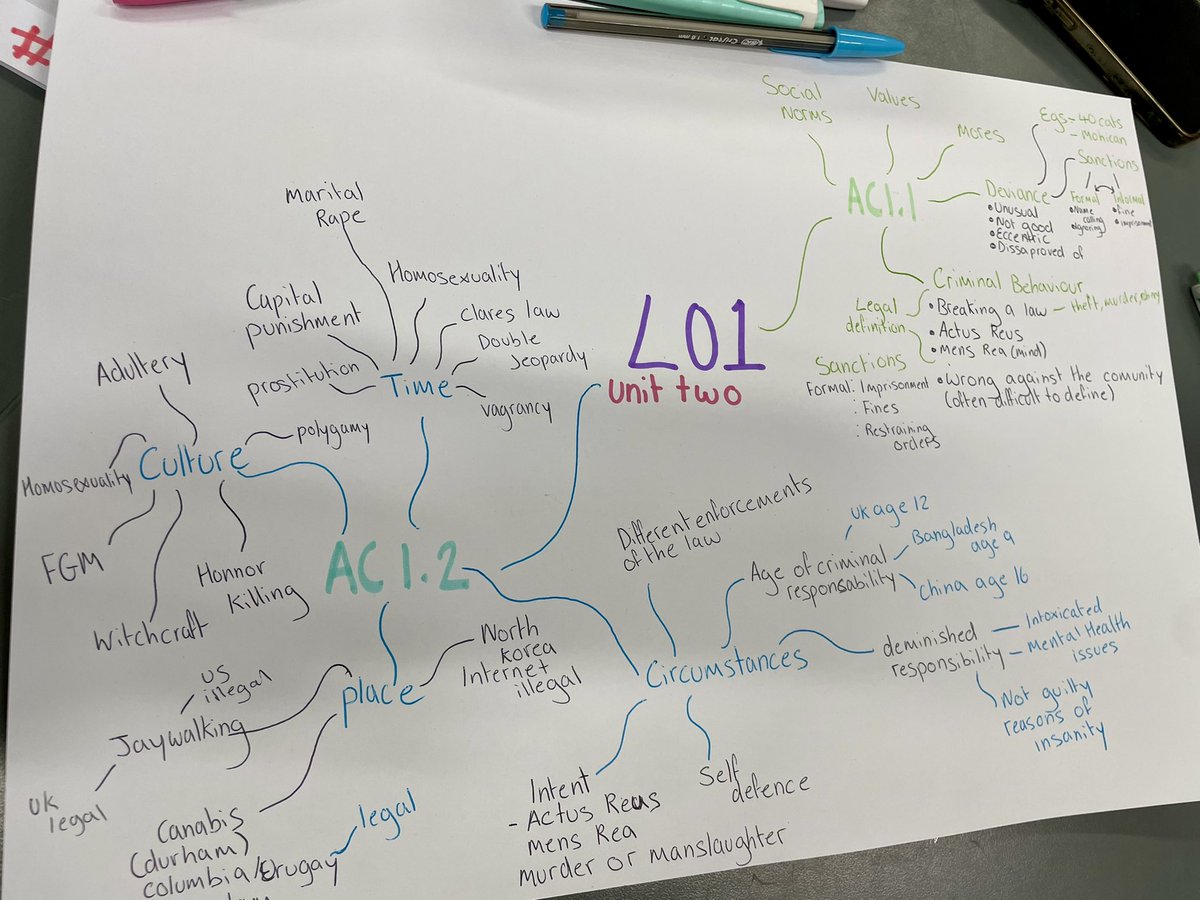 #
Cristal 1.0 mm
Social
norms
Values
Mores
AC1.1
Egs - 40 cats
- Mohican
Sanctions
Formal
• Name
calling
• ignoring
Informal
• Fine
• imprisonment
Deviance
• Unusual
• Not good
• Eccentric
• Dissaproved of
Criminal Behaviour
Legal
definition
• Breaking a law - theft, murder,
• Actus Reus
• Mens Rea (mind)
• Wrong against the comunity
(often difficult to define)
Sanctions
Formal: Imprisonment
: Fines
: Restraining
orders
LO1
unit two
Marital
Rape
Homosexuality
Capital
punishment
Clares law
Double
Jeopardy
prostitution
Time
vagrancy
Adultery
polygamy
Culture
Homosexuality
FGM
Witchcraft
Honnor
Killing
AC1.2
place
North
Korea
Internet
illegal
US
illegal
Jaywalking
UK
legal
Canabis
(durham)
columbia/Urugay
legal
Circumstances
Different enforcements
of the law
Age of criminal
responsability
UK age 12
Bangladesh
age 9
China age 16
deminished
responsibility
Intoxicated
Mental Health
issues
Not guilty
reasons of
insanity
Intent
- Actus Reus
mens Rea
murder or manslaughter
Self
defence